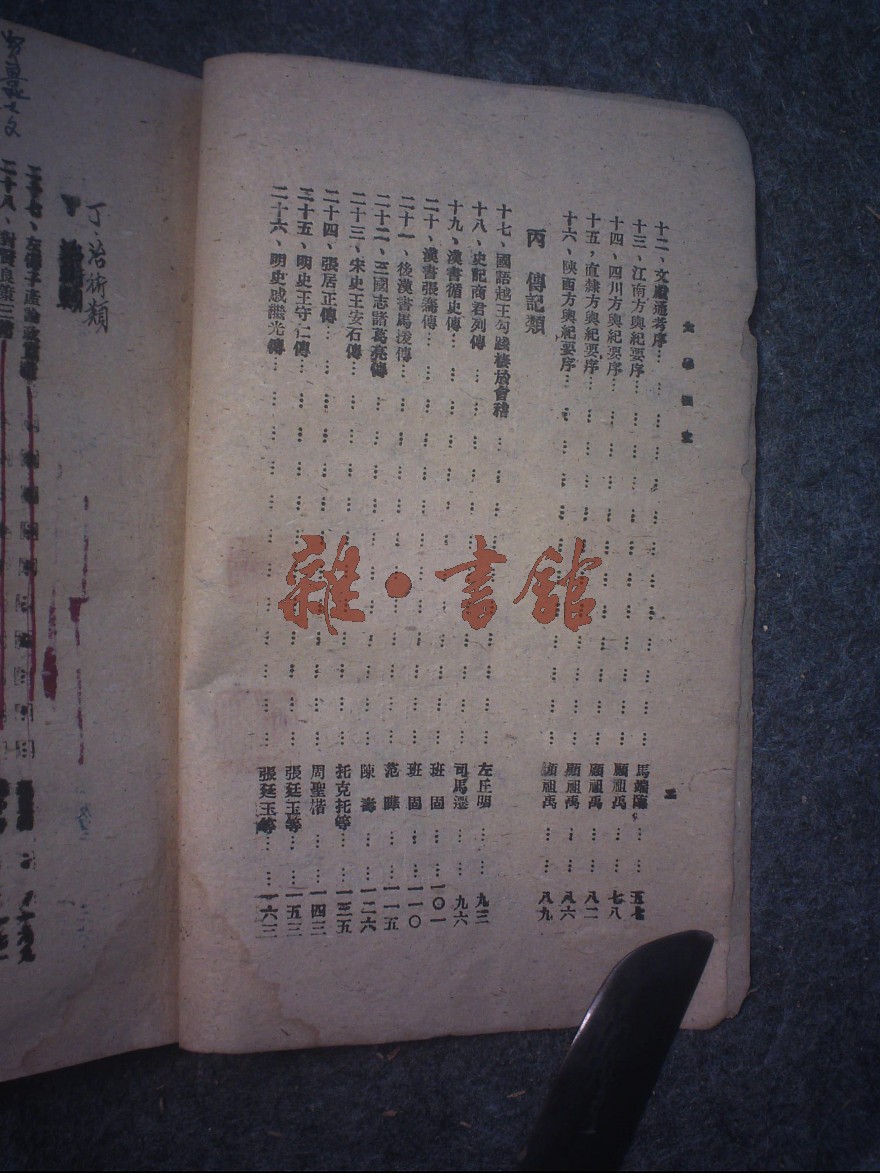 大學國文
二
十二、文獻通考序…馬端臨…五七
十三、江南方輿紀要序…顧祖禹…七八
十四、四川方輿紀要序…顧祖禹…八二
十五、直隸方輿紀要序…顧祖禹…八六
十六、陝西方輿紀要序…顧祖禹…八九
丙 傳記類
十七、國語越王勾踐棲於會稽…左丘明…九三
十八、史記商君列傳…司馬遷…九六
十九、漢書循史傳…班固…一〇一
二十、漢書張騫傳…班固…一一〇
二十一、後漢書馬援傳…范曄…一一五
二十二、三國志諸葛亮傳…陳壽…一二六
二十三、宋史王安石傳…托克托等…一三五
二十四、張居正傳…周聖楷…一四三
二十五、明史王守仁傳…張廷玉等…一五三
二十六、明史戚繼光傳…張廷玉等…一六三
丁、治術類
二十七、左傳子產論政
二十八、對賢良策三
雜·書館